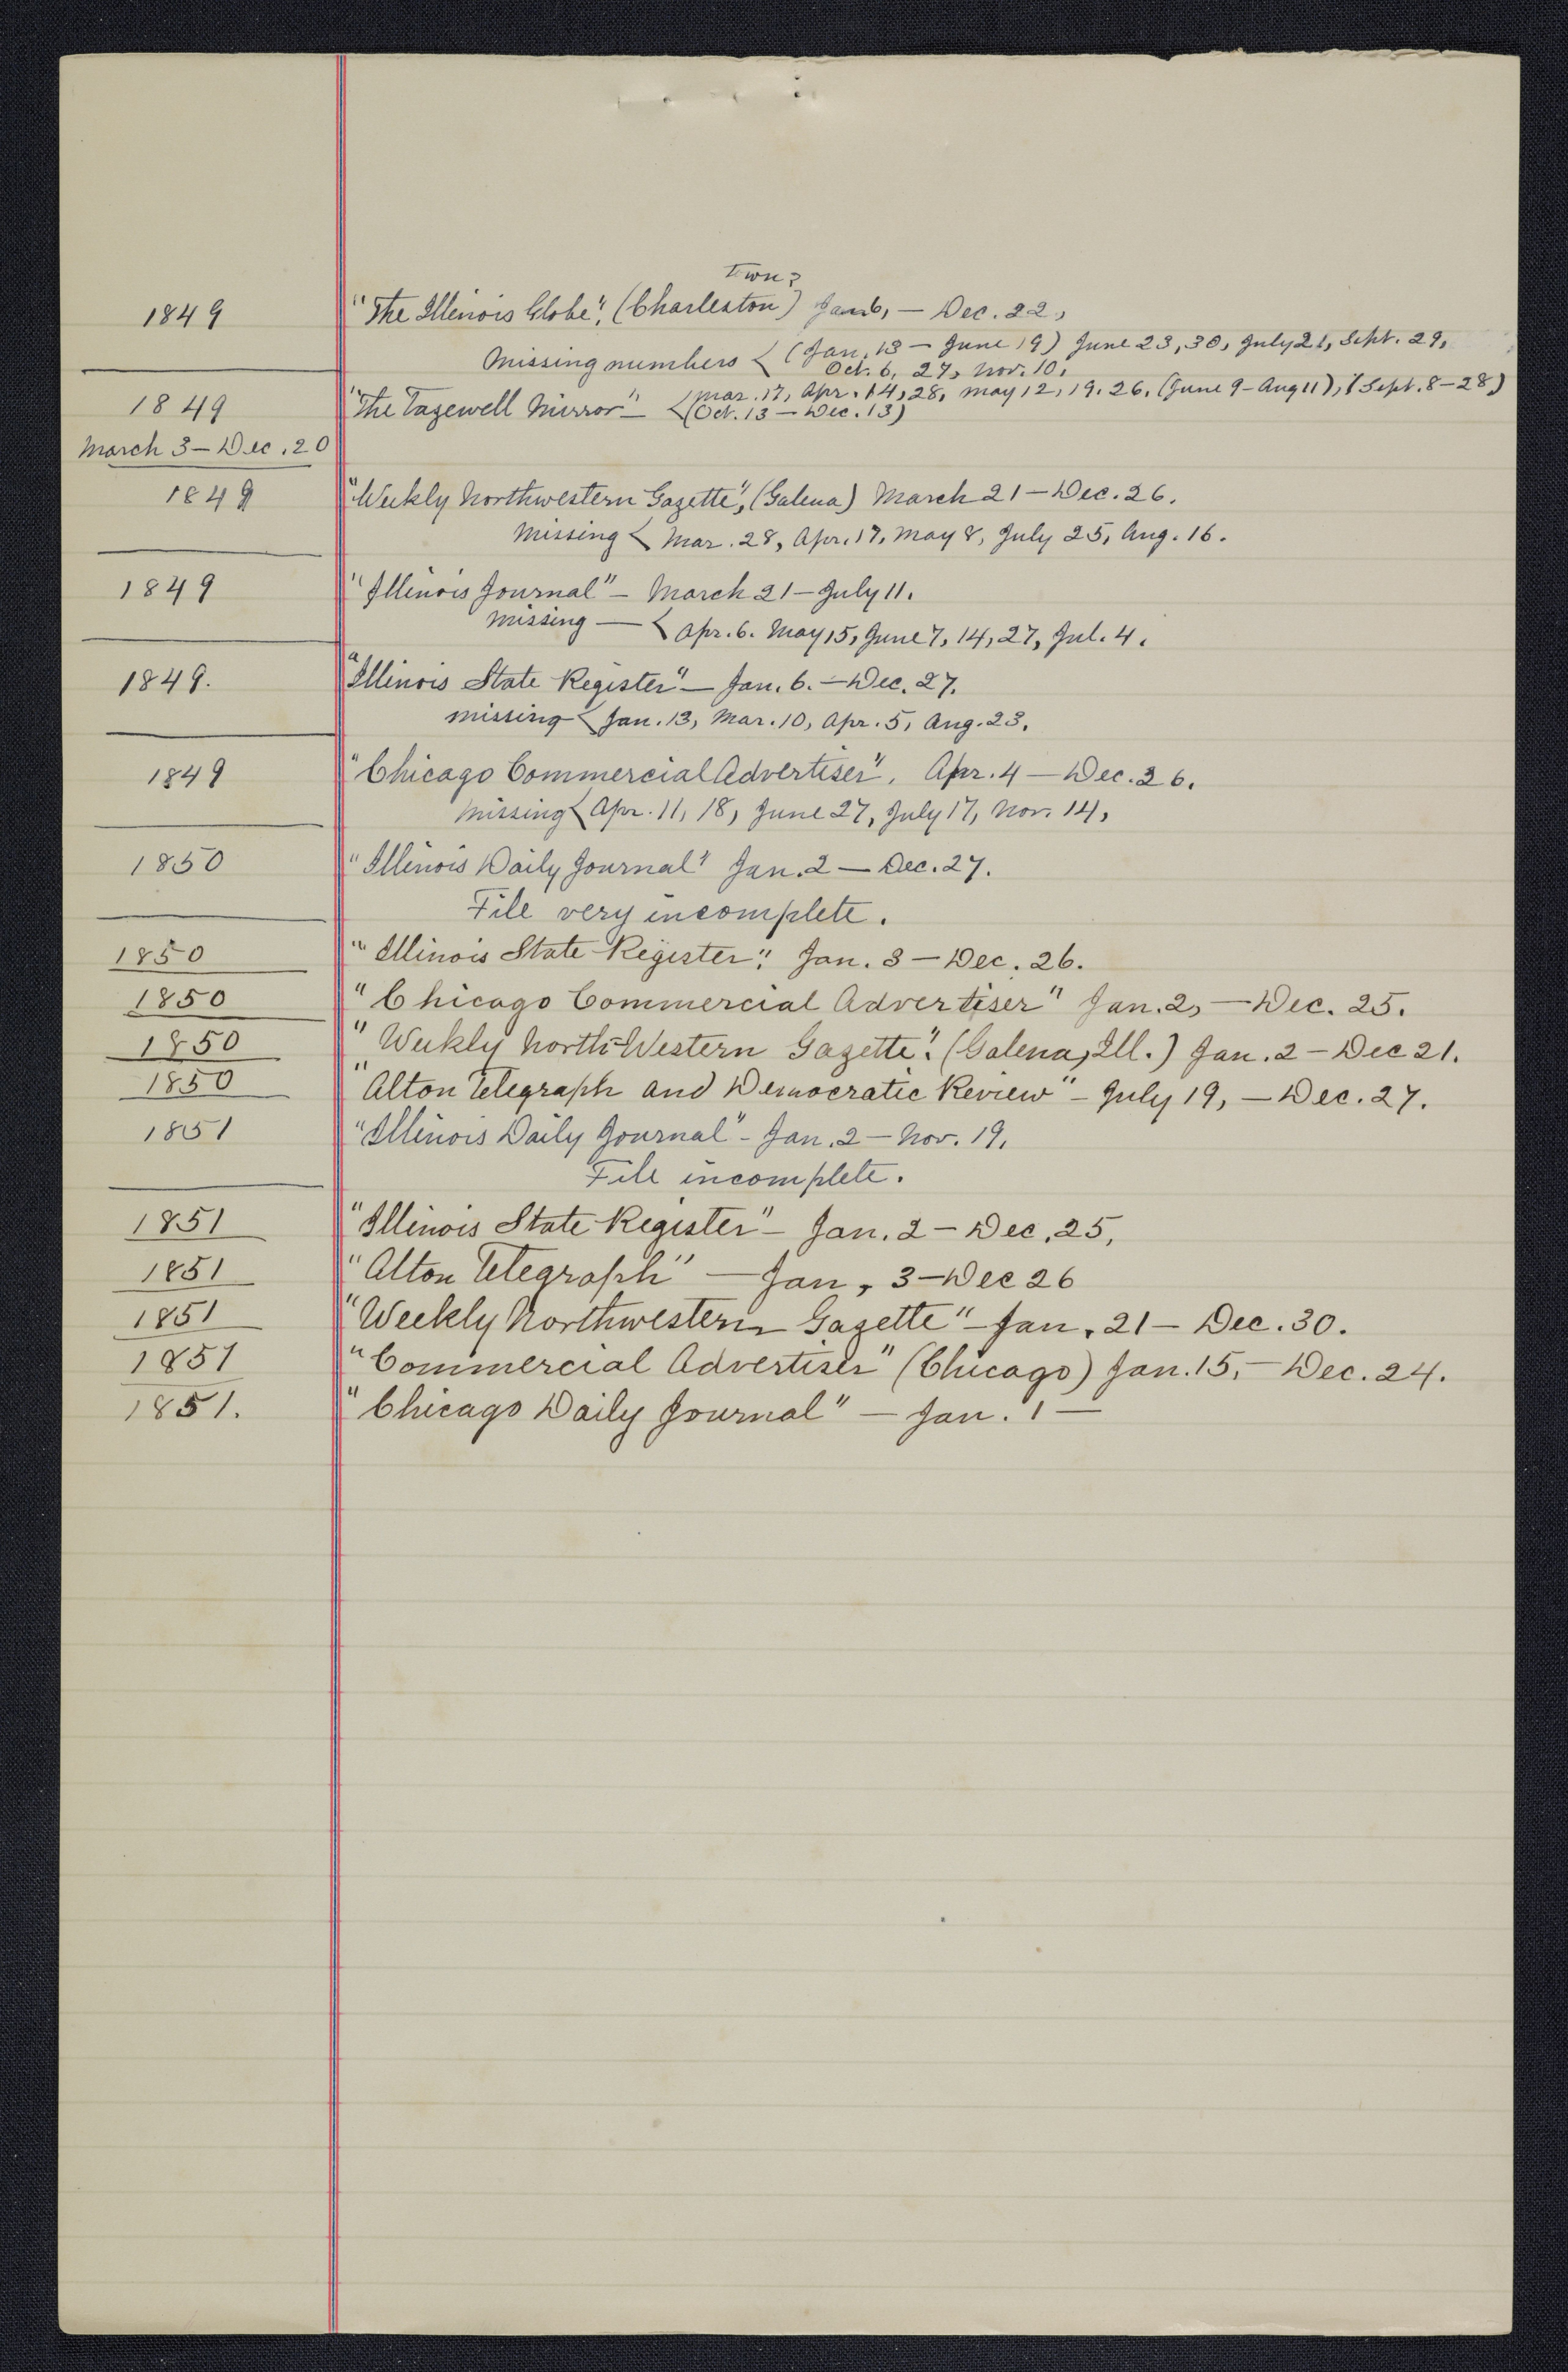 Town?
1849 "The Illinois Globe", (Charleston) Jan 6, — Dec. 22,
Missing numbers { (Jan. 13 — June 19) June 23, 30, July 21, Sept. 29,
Oct. 6, 27, Nov. 10,
1849 "The Tazewell Mirror" — { Mar. 17, Apr. 14, 28, May 12, 19. 26, (June 9 - Aug 11), (Sept. 8 - 28)
(Oct. 13 — Dec. 13)
March 3 — Dec. 20
1849 "Weekly Northwestern Gazette", (Galena) March 21 — Dec. 26.
Missing { Mar. 28, Apr. 17, May 8, July 25, Aug. 16.
1849 "Illinois Journal" — March 21 — July 11.
Missing — { Apr. 6. May 15, June 7, 14, 27, Jul. 4.
1849. "Illinois State Register" — Jan. 6. — Dec. 27.
missing { Jan. 13, Mar. 10, Apr. 5, Aug. 23.
1849 "Chicago Commercial Advertiser". Apr. 4 — Dec. 26.
Missing { Apr. 11, 18, June 27, July 17, Nov. 14,
1850 "Illinois Daily Journal" Jan. 2 — Dec. 27.
File very incomplete.
1850 "Illinois State Register". Jan. 3 — Dec. 26.
1850 "Chicago Commercial Advertiser" Jan. 2, — Dec. 25.
1850 "Weekly North-Western Gazette". (Galena, Ill.) Jan. 2 — Dec 21.
1850 "Alton Telegraph and Democratic Review" — July 19, — Dec. 27.
1851 "Illinois Daily Journal" - Jan. 2 — Nov. 19,
File incomplete.
1851 "Illinois State Register" — Jan. 2 — Dec. 25,
1851 "Alton Telegraph" — Jan. 3 — Dec 26
1851 "Weekly Northwestern Gazette" — Jan. 21 — Dec. 30.
1851 "Commercial Advertiser" (Chicago) Jan. 15, — Dec. 24.
1851. "Chicago Daily Journal" — Jan. 1 —